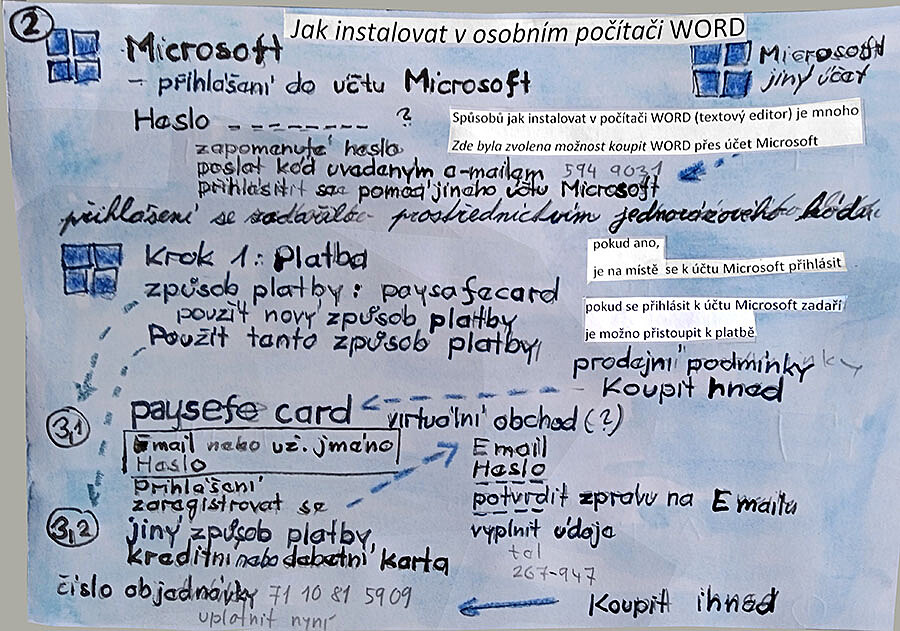 2
Jak instalovat v osobním počítači WORD
Microsoft
- přihlášení do účtu Microsoft
Microsoft
jiný účet
Haslo _ _ _ _ _ _ _ _ ?
Spůsobů jak instalovat v počítači WORD (textový editor) je mnoho
Zde byla zvolena možnost koupit WORD přes účet Microsoft
zapomenuté heslo
poslat kód uvedeným e-mailem 594 9031
přihlásitit se pomocí jineho účtu Microsoft
přihlášení se zadařilo prostřednictvím jednorázového kódu
pokud ano,
je na místě se k účtu Microsoft přihlásit
Krok 1: Platba
způsob platby: paysafecard
použít nový způsob platby
Použít tento způsob platby
pokud se přihlásit k účtu Microsoft zadaří
je možno přistoupit k platbě
prodejní podmínky
Koupit hned
3,1
paysefe card
virtuální obchod (?)
Email nebo už. jméno
Haslo
Přihlášení
zaregistrovat se
Email
Heslo
potvrdit zpravu na Emailu
vyplnit údaje
tel
267-947
3,2
jiný způsob platby
kreditní nebo debetní karta
číslo objednávky 71 10 81 5909
uplatnit nyní
Koupit ihned